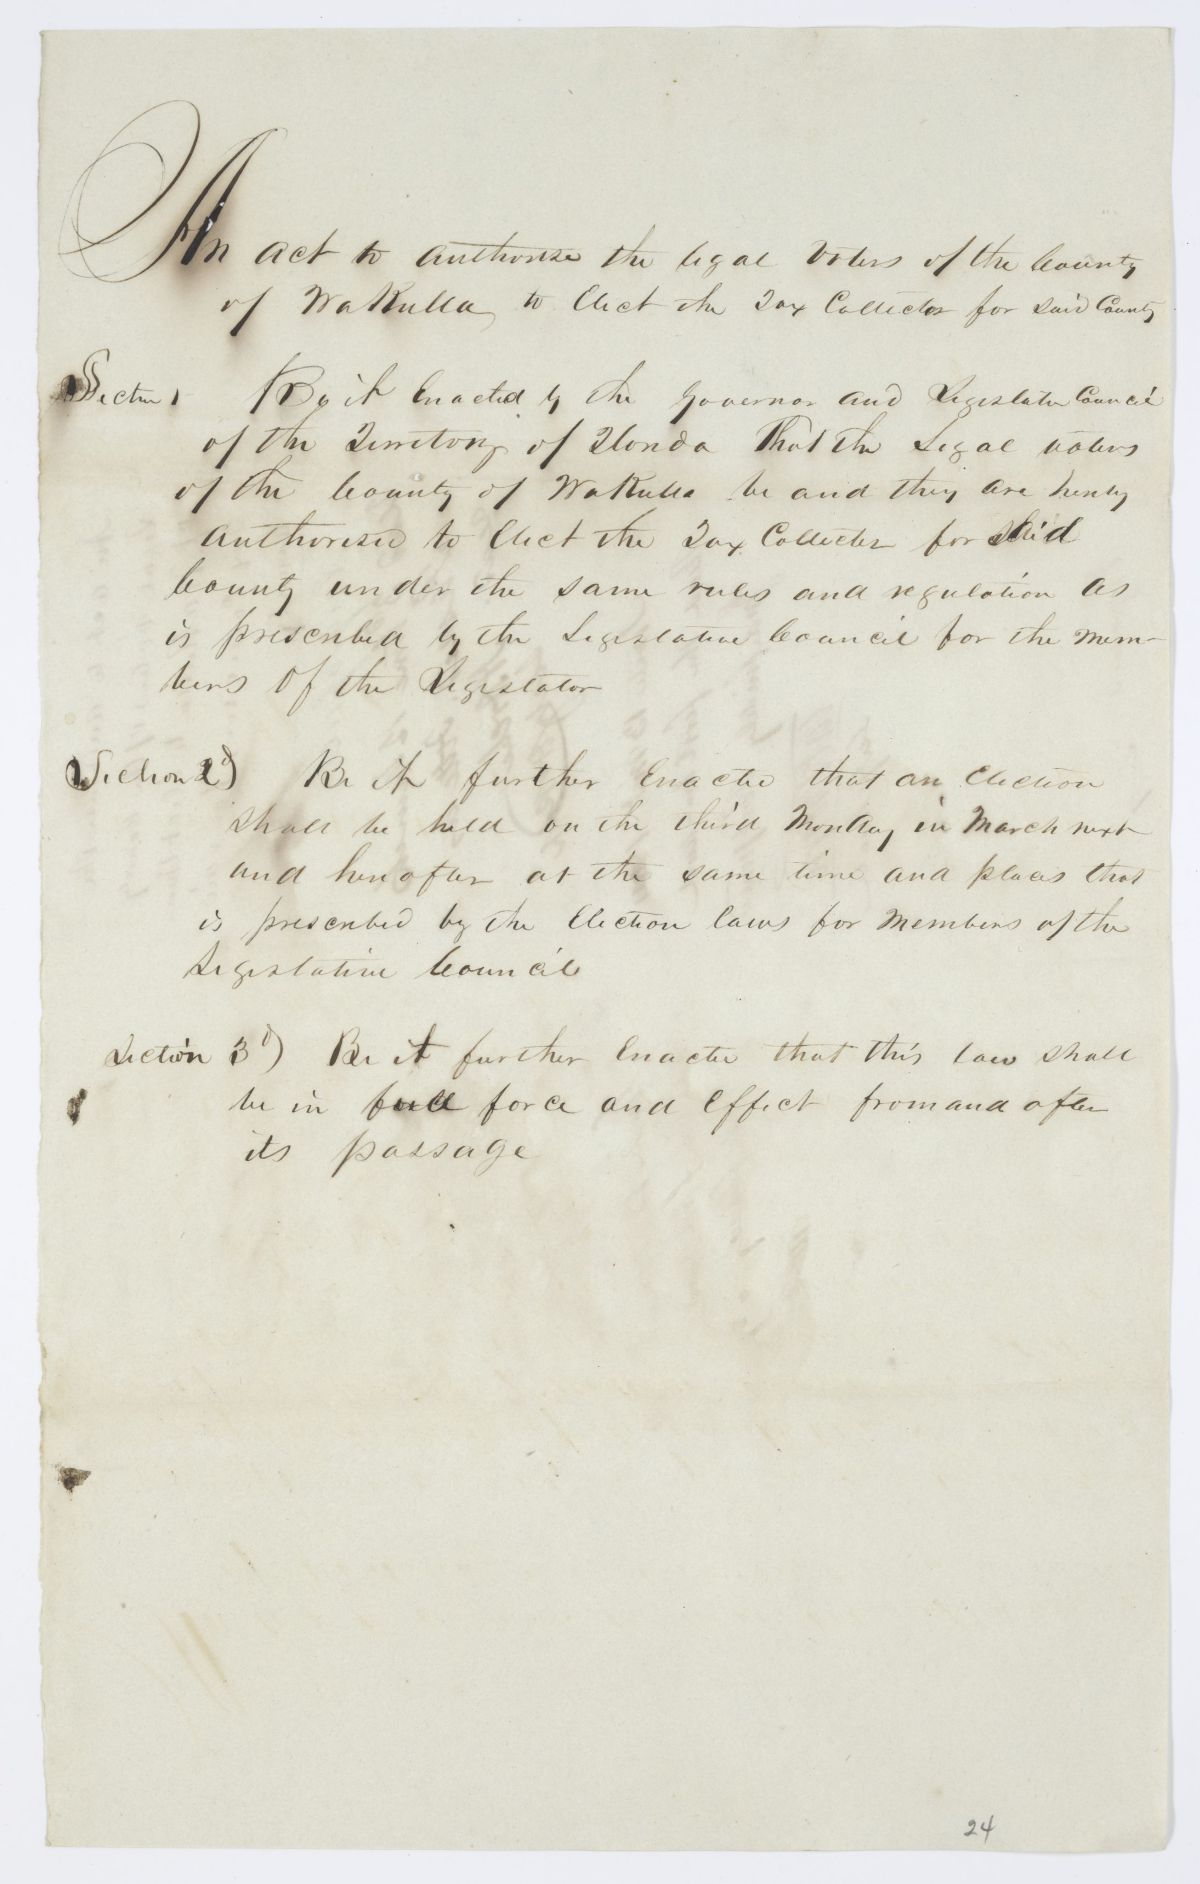 An act to authorise the legal voters of the County
of Wakulla to Elect the Tax Collector for said County
Section 1 Be it Enacted by the Governor and Legislative Council
of the Territory of Florida That the Legal voters
of the County of Wakulla be and they are hereby
authorised to Elect the Tax Collector for said
County under the same rules and regulation as
is prescribed by the Legislative Council for the Mem-
bers Of the Legislator
Section 2d) Be it further Enacted that an Election
shall be held on the third Monday in March next
and hereafter at the same time and places that
is prescribed by the Election laws for Members of the
Legislative Council
Section 3d) Be it further Enacted that this law shall
be in full force and Effect from and after
its passage
24